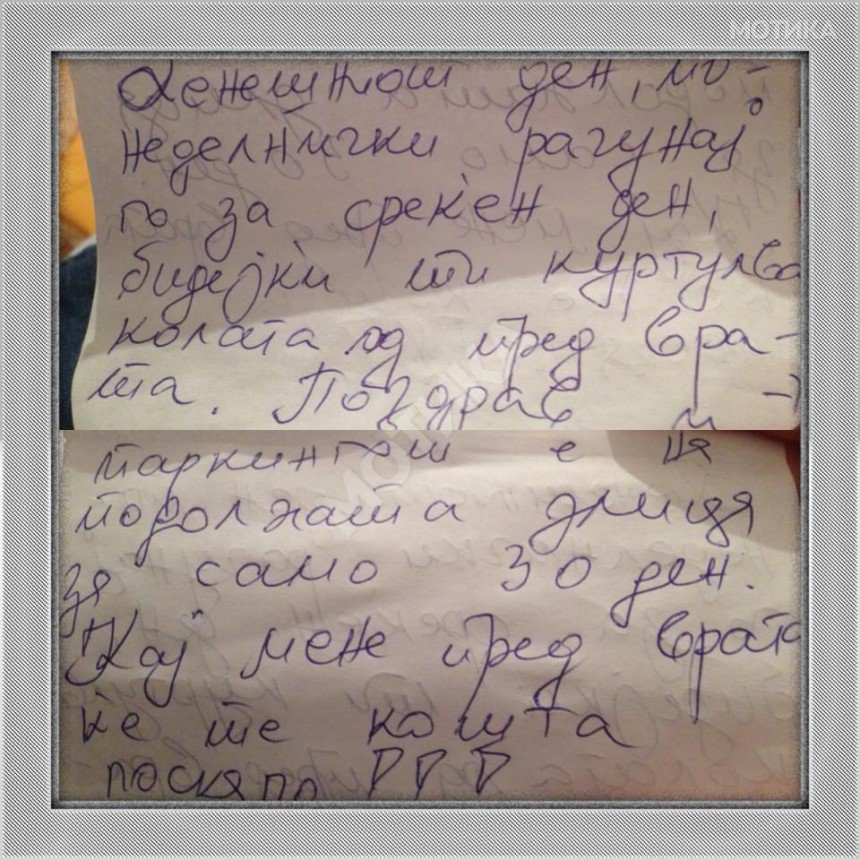 МОТИКА
Денешниот ден, по-
неделнички рачунај
го за среќен ден,
бидејќи ти куртулва
колата од пред вра-
та. Поздрав
паркингот е на
подолната улица
за само 30 ден.
Кај мене пред врата
ќе те кошта
поскапо !!!